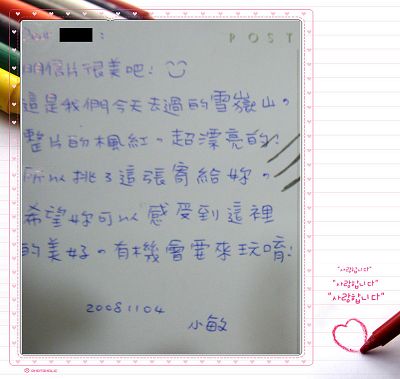 Dear :
POST
明信片很美吧!
這是我們今天去過的雪嶽山。
整片的楓紅。超漂亮的!
所以挑了這張寄給妳。
希望妳可以感受到這裡
的美好。有機會要來玩唷!
20081104
小敏
"사랑합니다"
"사랑합니다"
"사랑합니다"
PHOTOHOLIC